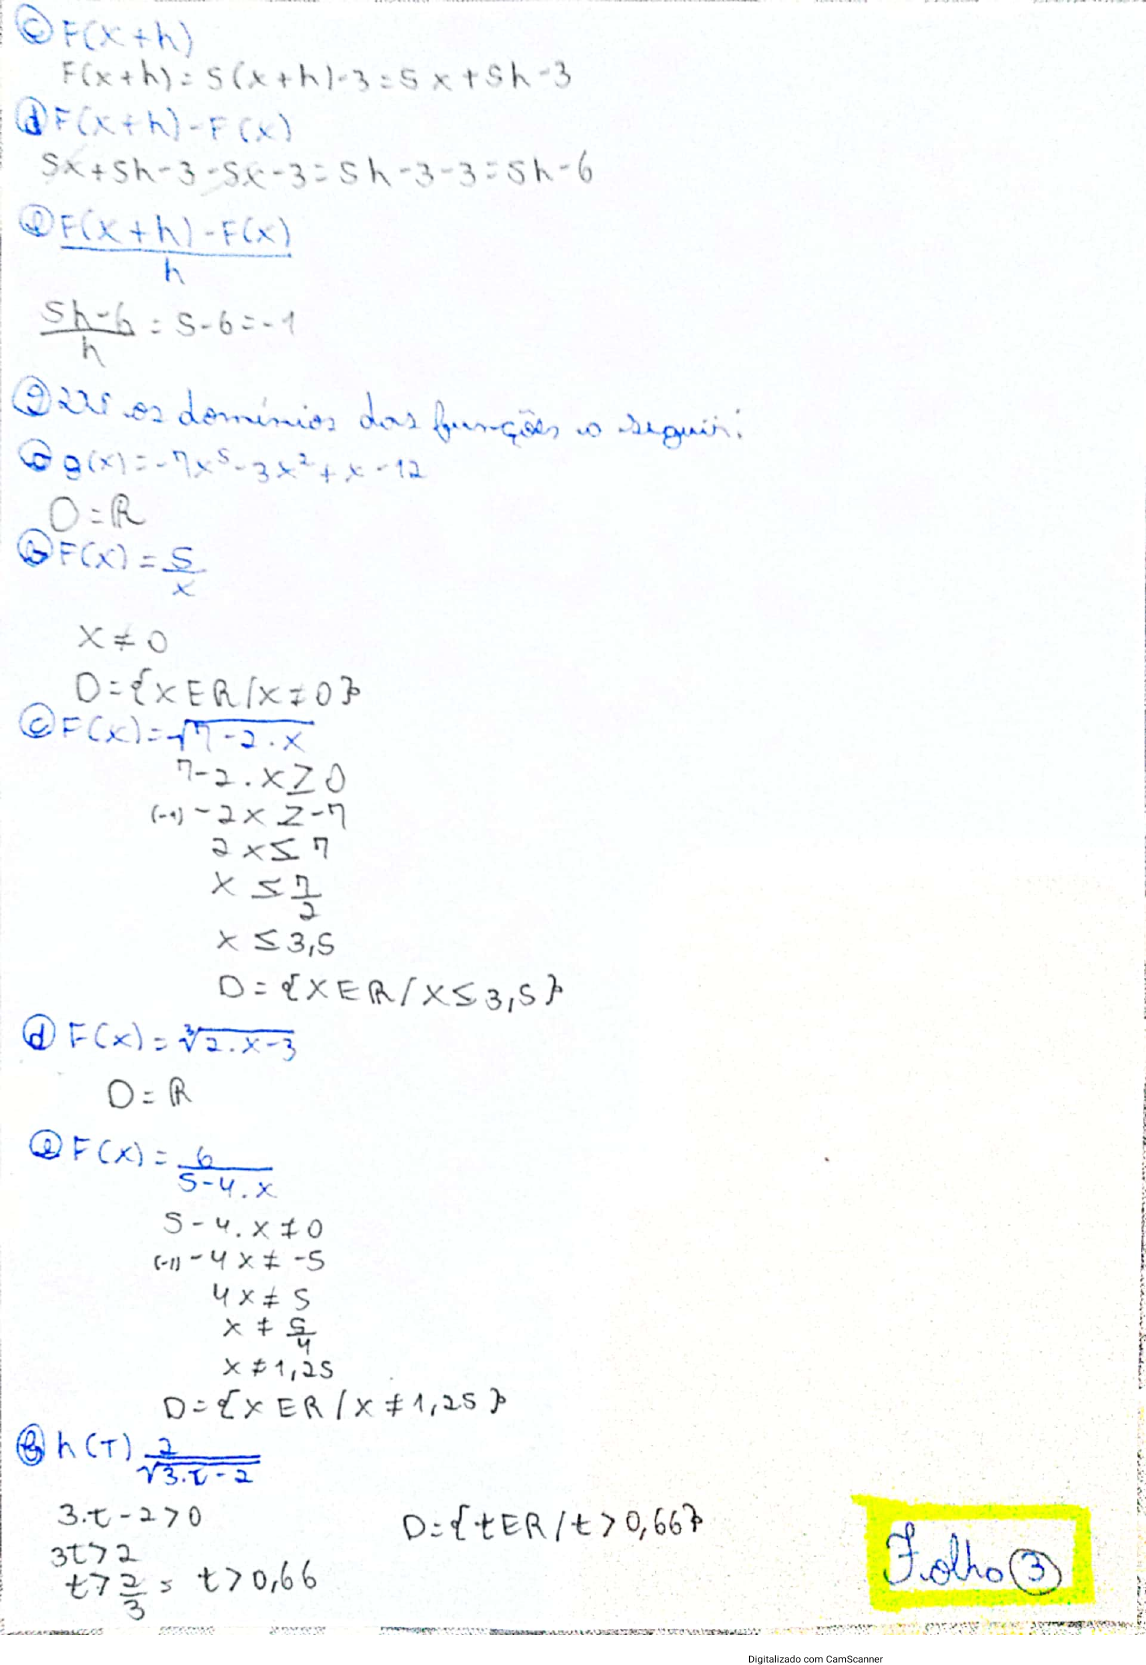 c) F(x+h)
F(x+h) = 5(x+h)-3 = 5x+5h-3
d) F(x+h)-F(x)
5x+5h-3-5x-3 = 5h-3-3 = 5h-6
e) F(x+h)-F(x)
h
5h-6 = 5-6 = -1
h
os domínios das funções a seguir:
a) g(x) = -7x⁵-3x²+x-12
D = ℝ
b) F(x) = 5
x
x ≠ 0
D = {x E R / x ≠ 0}
c) F(x) = √7-2.x
7-2.x ≥ 0
(-1) -2x ≥ -7
2x ≤ 7
x ≤ 7
2
x ≤ 3,5
D = {x E R / x ≤ 3,5}
d) F(x) = ∛2.x-3
D = ℝ
e) F(x) = 6
5-4.x
5-4.x ≠ 0
(-1) -4x ≠ -5
4x ≠ 5
x ≠ 5
4
x ≠ 1,25
D = {x E R / x ≠ 1,25}
h(T) 2
√3.t-2
3.t-2>0
D = {t E R / t > 0,66}
3t>2
t > 2 = t > 0,66
3
Folha 3
Digitalizado com CamScanner